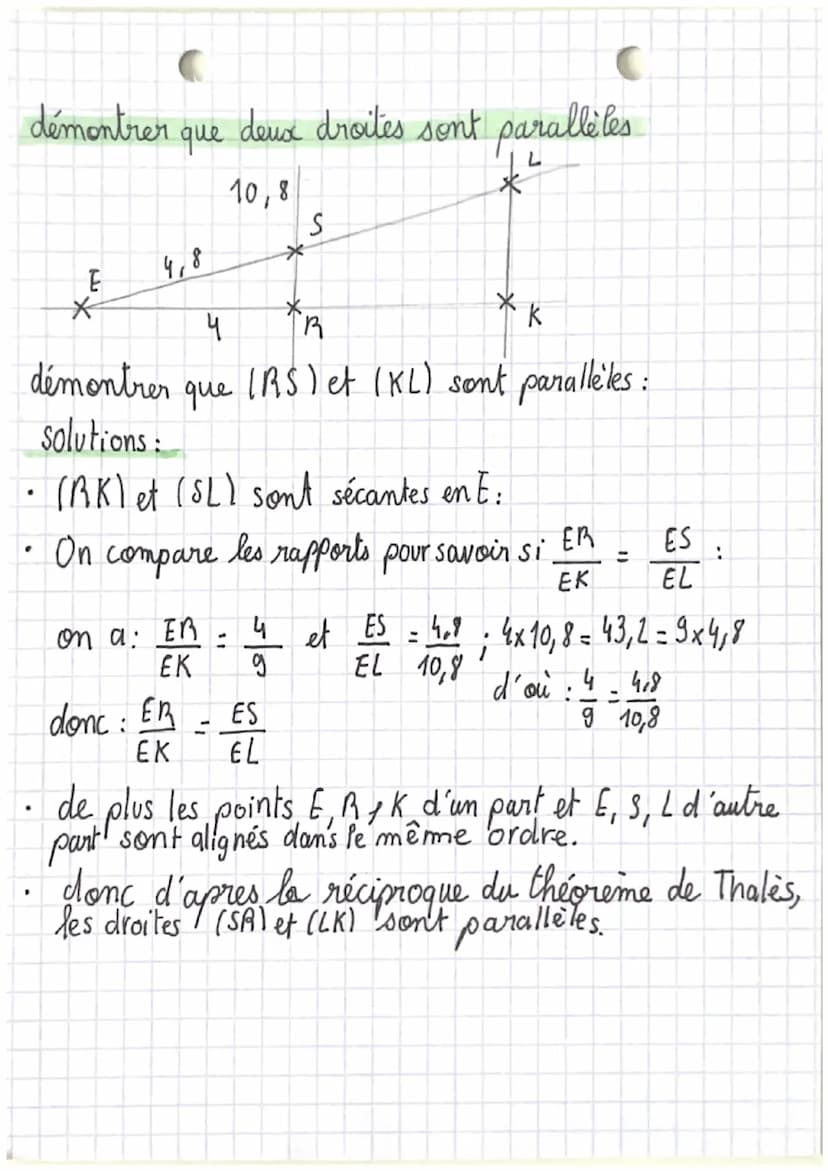 démontrer que deux droites sont parallèles
L
10,8
S
4,8
E
4
R
K
démontrer que (RS) et (KL) sont parallèles :
solutions :
• (RK) et (SL) sont sécantes en E :
• On compare les rapports pour savoir si ER/EK = ES/EL :
on a : ER/EK = 4/9 et ES/EL = 4,8/10,8 ; 4x10,8 = 43,2 = 9x4,8
d'où : 4/9 = 4,8/10,8
donc : ER/EK = ES/EL
• de plus les points E, R, K d'un part et E, S, L d'autre
part sont alignés dans le même ordre.
• donc d'apres la réciproque du théoreme de Thalès,
les droites (SR) et (LK) sont parallèles.